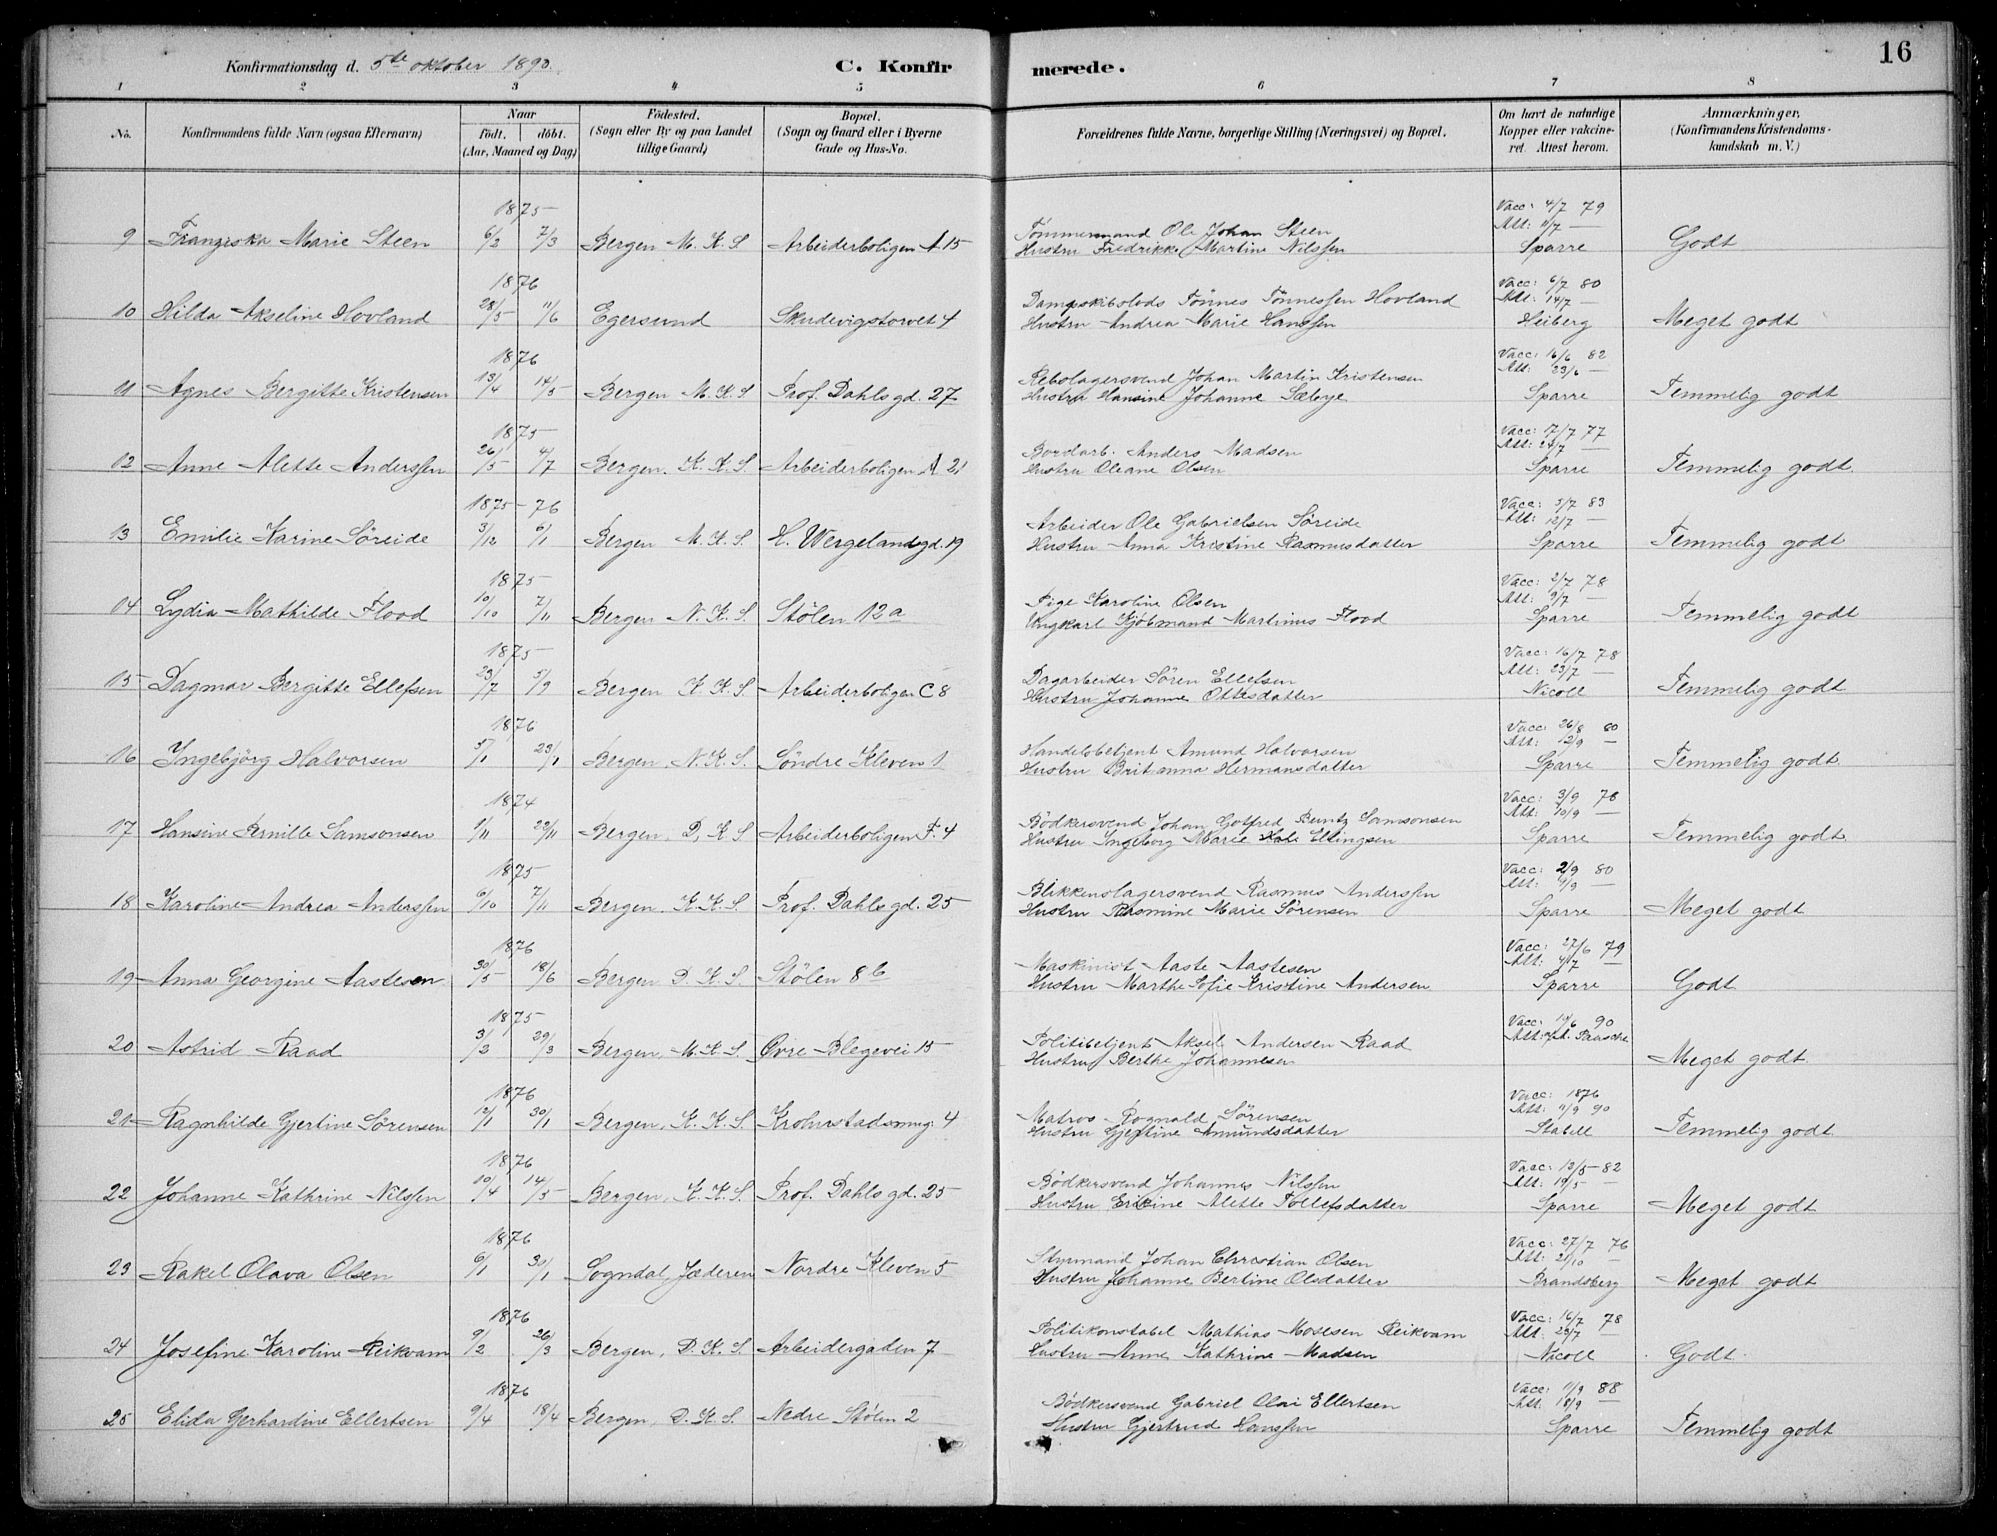 16
Konfirmationsdag d. 5te oktober 1890.
C. Konfirmerede.
1 2 3 4 5 6 7 8
No.
Konfirmandens fulde Navn (ogsaa Efternavn)
Naar
födt. döbt.
(Aar, Maaned og Dag)
Födested.
(Sogn eller By og paa Landet
tillige Gaard)
Bopæl.
(Sogn og Gaard eller i Byerne
Gade og Hus-No.
Forældrenes fulde Navne, borgerlige Stilling (Næringsvei) og Bopæl.
Om havt de naturlige
Kopper eller vakcine-
ret. Attest herom.
Anmærkninger.
(Konfirmandens Kristendoms-
kundskab m. V.)
1875 Vacc: 4/7 79
Tömmermand Ole Johan Steen Att: 11/7 —
9 Franziska Marie Steen 6/2 7/3 Bergen M. K. S Arbeiderboligen A 15
Hustru Fredrikke Martine Nilssen Sparre Godt
1876 Vacc: 6/7 80
Dampskibslods Tönnes Tönnessen Hovland Att: 14/7 —
10 Hilda Akseline Hovland 28/5 11/6 Egersund Skudevigstorvet 4
Hustru Andrea Marie Hanssen Heiberg Meget godt
1876 Vacc: 16/6 82
Rebslagersvend Johan Martin Kristensen Att: 23/6 —
11 Agnes Bergitte Kristensen 13/4 14/5 Bergen M. K. S Prof. Dahls gd. 27
Hustru Hansine Johanne Sæbye Sparre Temmelig godt
1875 Vacc: 17/7 77
Bordarb. Anders Madsen Att: 24/7 —
12 Anne Alette Anderssen 26/5 4/7 Bergen. K. K. S. Arbeiderboligen A. 21
Hustru Oleane Olsen Sparre Temmelig godt.
1875-76 Vacc: 5/7 83
Arbeider Ole Gabrielsen Söreide Att: 12/7 —
13 Emilie Karine Söreide 3/12 6/1 Bergen M. K. S. H. Wergelandsgd. 19
Hustru Anna Kristine Rasmusdatter Sparre Temmelig godt
1875 Vacc: 2/7 78
Pige Karoline Olsen Att: 9/7 —
14 Lydia Mathilde Flood 10/10 7/11 Bergen N. K. S. Stölen 12a
Ungkarl Kjöbmand Martinus Flood Sparre Temmelig godt
1875 Vacc: 16/7 78
Dagarbeider Sören Ellefsen Att: 23/7 —
15 Dagmar Bergitte Ellefsen 23/7 5/9 Bergen K. K. S. Arbeiderboligen C 8
Hustru Johanne Ottesdatter Nicoll Temmelig godt
1876 Vacc: 26/8 80
Handelsbetjent Amund Halvorsen Att: 12/9 —
16 Ingebjörg Halvorsen 5/1 23/1 Bergen. N. K. S. Söndre Kleven 1
Hustru Britanna Hermansdatter Sparre Temmelig godt.
1874 Vacc: 3/9 76
Bödkersvend Johan Gotfred Bentz Samsonsen Att: 10/9 —
17 Hansine Pernille Samsonsen 1/11 22/11 Bergen. D. K. S Arbeiderboligen F. 4
Hustru Ingeborg Marie Eltingsen Sparre Temmelig godt
1875 Vacc: 2/9 80
Blikkenslagersvend Rasmus Anderssen Att: 9/9 —
18 Karoline Andrea Anderssen 6/10 7/11 Bergen. K. K. S. Prof. Dahls gd. 25
Hustru Rasmine Marie Sörensen Sparre Meget godt
1876 Vacc: 27/6 79
Maskinist Aaste Aastesen Att: 4/7 —
19 Anna Georgine Aastesen 30/5 18/6 Bergen D. K. S. Stölen 8b
Hustru Marthe Sofie Kristine Andersen Sparre Godt
1875 Vacc: 90
Politibetjent Aksel Andersen Raad Att: Paasche
20 Astrid Raad 3/3 29/3 Bergen, M. K. S. Øvre Blegevei 15
Hustru Berthe Johannesen Meget godt.
1876 Vacc: 1876
Matros Rognald Sörensen Att: 11/9 90
21 Ragnhilde Gjertine Sörensen 12/1 30/1 Bergen, K. K. S. Krohnstadsmug. 4
Hustru Gjertine Amundsdatter Stabell Temmelig godt.
1876 Vacc: 12/5 82
Bödkersvend Johannes Nilssen Att: 19/5 —
22 Johanne Kathrine Nilssen 10/4 14/5 Bergen, K. K. S. Prof. Dahls gd. 25
Hustru Erikine Alette Tollefsdatter Sparre Meget godt
1876 Vacc: 27/7 76
Styrmand Johan Christian Olsen Att: 21/10 —
23 Rakel Olava Olsen 6/1 30/1 Sogndal, Jæderen Nordre Kleven 5
Hustru Johanne Bertine Olsdatter Brandsberg Meget godt
1876 Vacc: 16/7 78
Politikonstabel Mathias Mosesen Reikvam Att: 23/7 —
24 Josefine Karoline Reikvam 9/2 26/3 Bergen, D. K. S. Arbeidergaden 7
Hustru Anne Kathrine Madsen Nicoll Godt.
1876 Vacc: 11/9 88
Bödkersvend Gabriel Olai Ellertsen Att: 18/9 —
25 Elida Gerhardine Ellertsen 9/4 18/4 Bergen, D. K. S. Nedre Stölen 2
Hustru Gjertrud Hanssen Sparre Temmelig godt